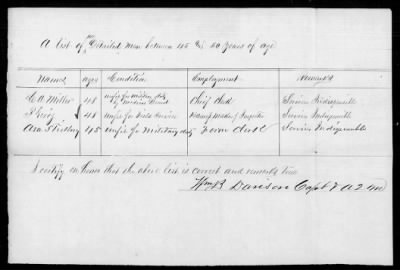 A list of Detailed Men between 45 & 50 years of age
Names ages Condition Employment Remarks
C. A. Miller 48 unfit for Military duty by Medical Board Chief Clerk Services Indispensible
48 unfit for Field Service Services Indispensible
45 unfit for Military duty Clerk Services Indispensible
I certify on honor that the above list is correct and remarks true
Wm B Davison Capt & A Q M